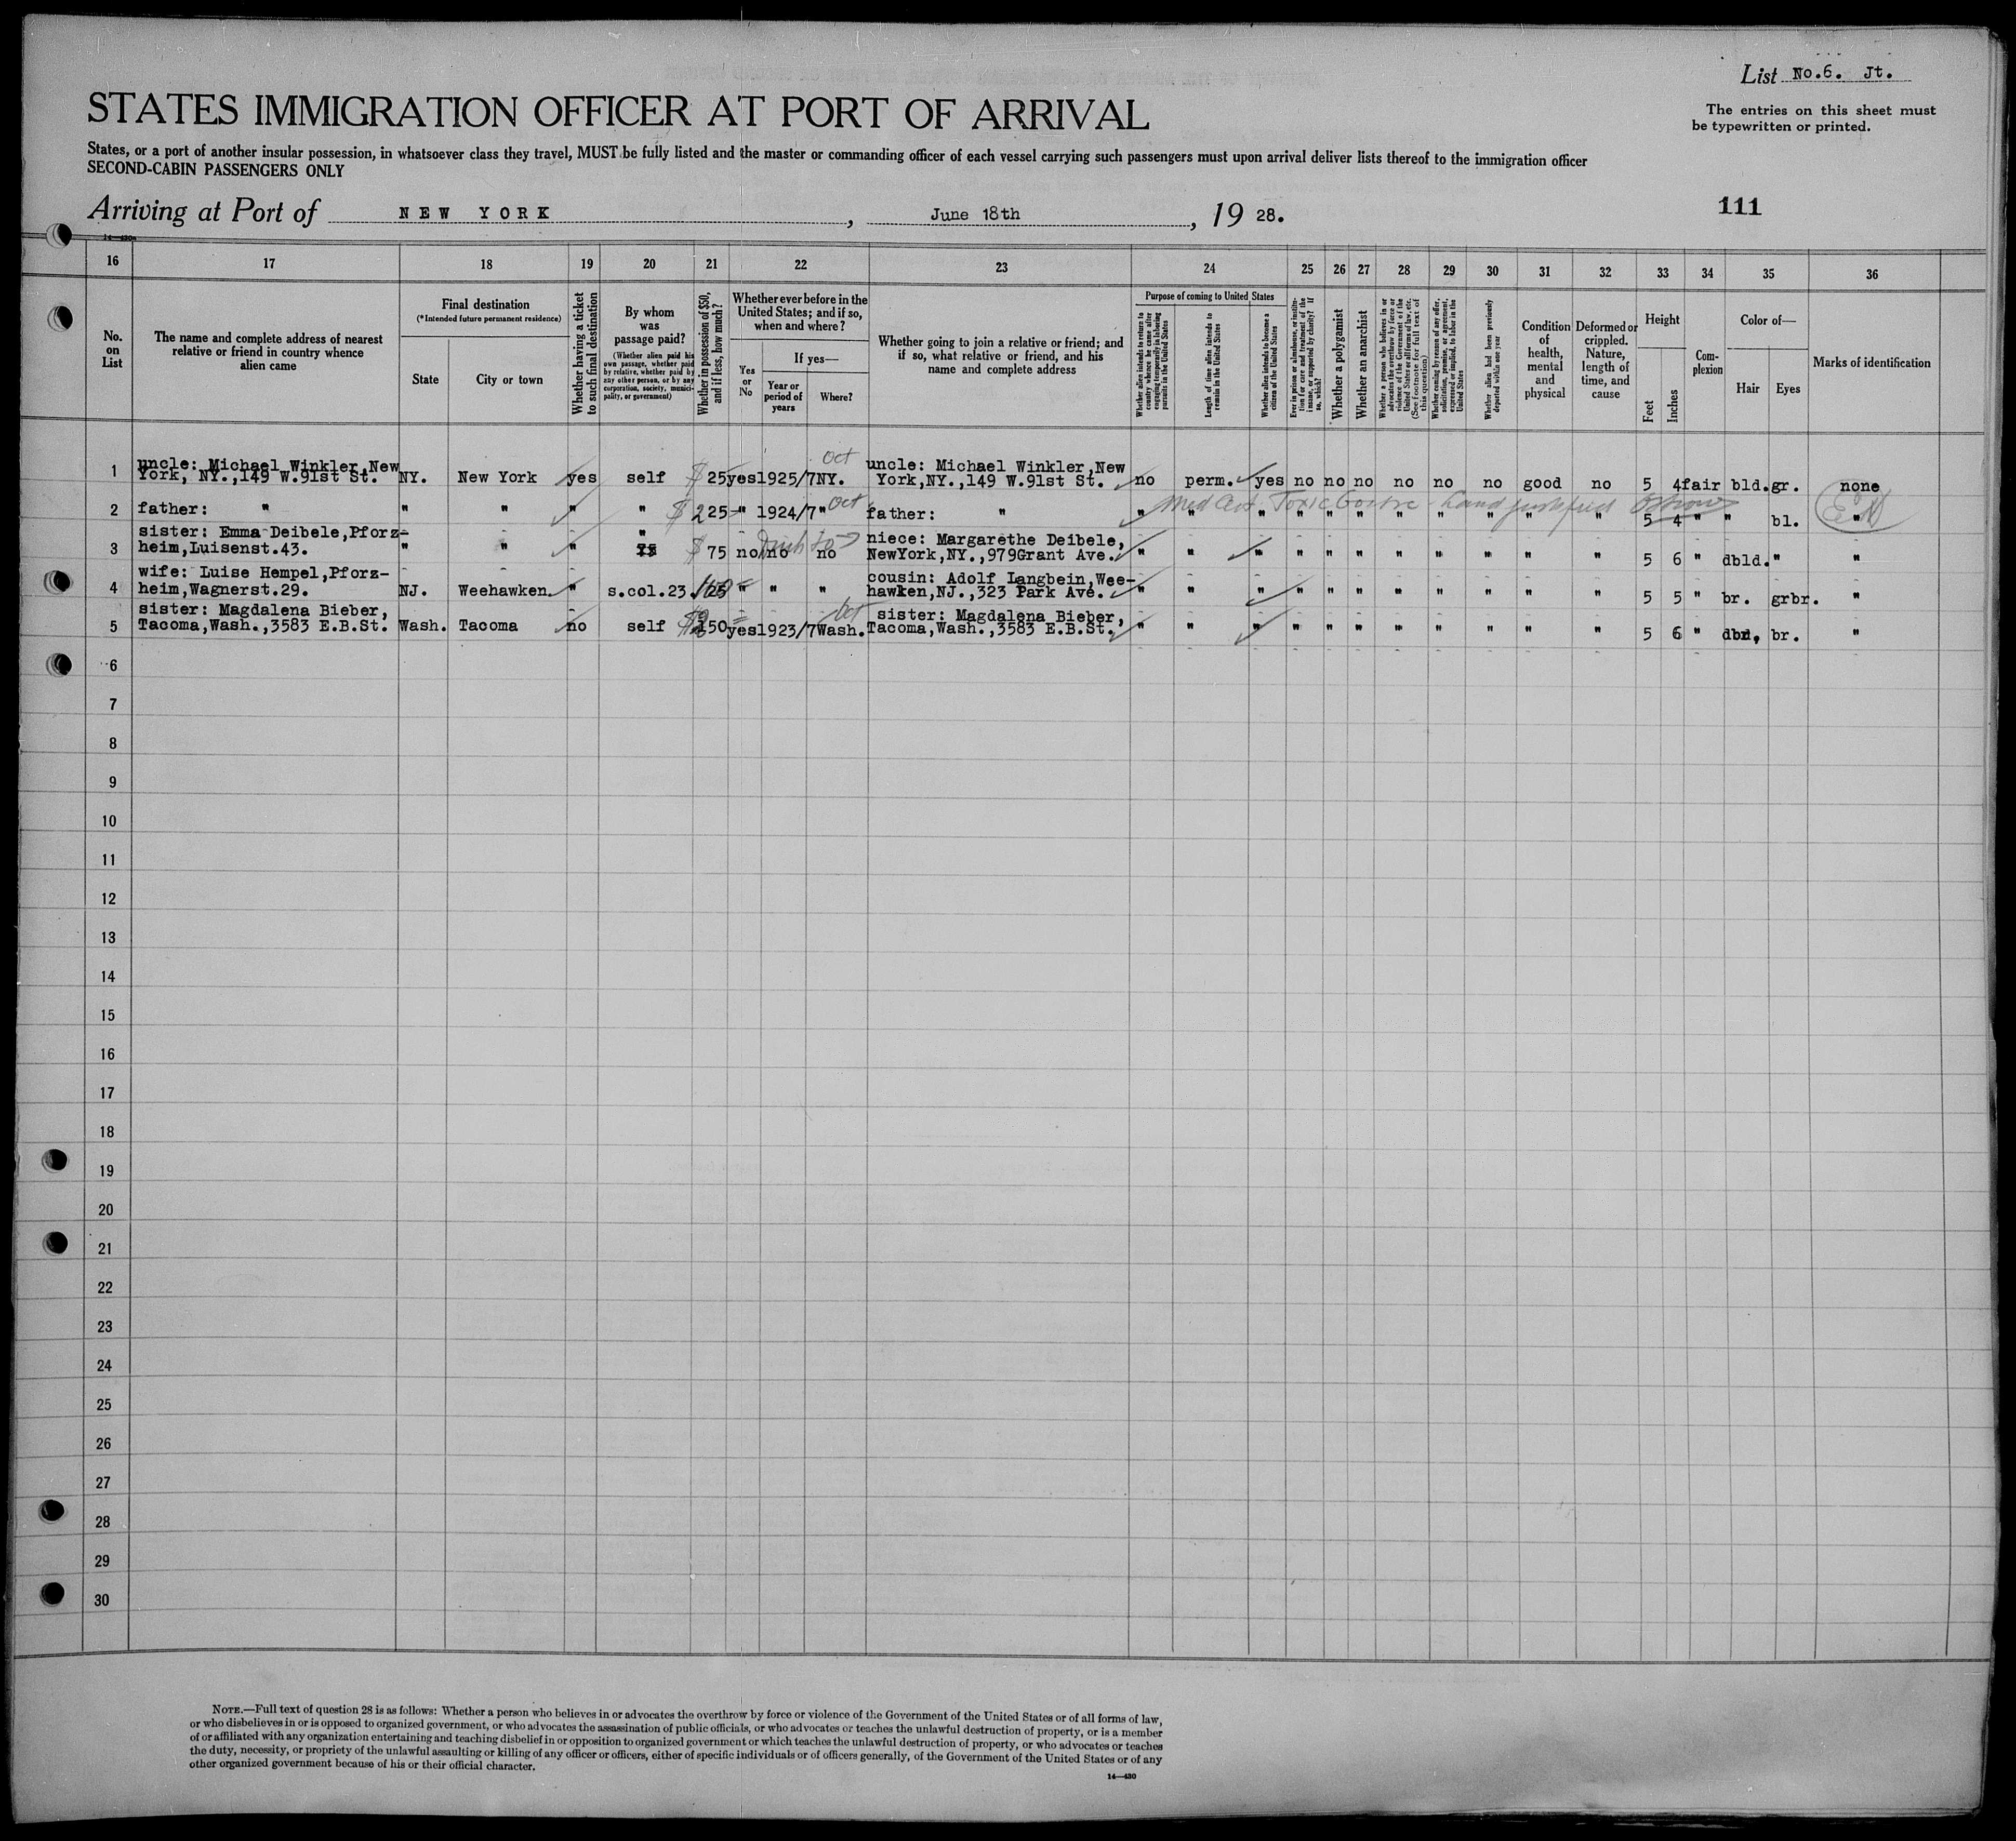 List No.6. Jt.
STATES IMMIGRATION OFFICER AT PORT OF ARRIVAL
The entries on this sheet must
be typewritten or printed.
States, or a port of another insular possession, in whatsoever class they travel, MUST be fully listed and the master or commanding officer of each vessel carrying such passengers must upon arrival deliver lists thereof to the immigration officer
SECOND-CABIN PASSENGERS ONLY
Arriving at Port of NEW YORK, June 18th, 19 28.
111
14—430
16 17 18 19 20 21 22 23 24 25 26 27 28 29 30 31 32 33 34 35 36
No. on List
The name and complete address of nearest
relative or friend in country whence
alien came
Final destination
(*Intended future permanent residence)
State
City or town
Whether having a ticket
to such final destination
By whom
was
passage paid?
(Whether alien paid his
own passage, whether paid
by relative, whether paid by
any other person, or by any
corporation, society, munici-
pality, or government)
Whether in possession of $50,
and if less, how much?
Whether ever before in the
United States; and if so,
when and where?
Yes
or
No
If yes—
Year or
period of
years
Where?
Whether going to join a relative or friend; and
if so, what relative or friend, and his
name and complete address
Purpose of coming to United States
Whether alien intends to return to
country whence he came after
engaging temporarily in laboring
pursuits in the United States
Length of time alien intends to
remain in the United States
Whether alien intends to become a
citizen of the United States
Ever in prison or almshouse, or institu-
tion for care and treatment of the
insane, or supported by charity? If
so, which?
Whether a polygamist
Whether an anarchist
Whether a person who believes in or
advocates the overthrow by force or
violence of the Government of the
United States or all forms of law, etc.
(See footnote for full text of
this question)
Whether coming by reason of any offer,
solicitation, promise, or agreement,
expressed or implied, to labor in the
United States
Whether alien had been previously
deported within one year
Condition
of
health,
mental
and
physical
Deformed or
crippled.
Nature,
length of
time, and
cause
Height
Feet
Inches
Com-
plexion
Color of—
Hair
Eyes
Marks of identification
Oct
1 uncle: Michael Winkler,New
York, NY.,149 W.91st St. NY. New York yes self $ 25 yes 1925/7 NY. uncle: Michael Winkler,New
York,NY.,149 W.91st St. no perm. yes no no no no no no good no 5 4 fair bld. gr. none
Med Cert. Toxic Goitre - Land justified
2 father: " " " " " $ 225 " 1924/7 " Oct father: " " " " " " " " " " " " 5 4 " " bl. "
3 sister: Emma Deibele,Pforz-
heim,Luisenst.43. " " " " $ 75 no no no niece: Margarethe Deibele,
NewYork,NY.,979Grant Ave. " " " " " " " " " " " 5 6 " dbld. " "
4 wife: Luise Hempel,Pforz-
heim,Wagnerst.29. NJ. Weehawken. " s.col.23. " " " cousin: Adolf Langbein,Wee-
hawken,NJ.,323 Park Ave. " " " " " " " " " " " 5 5 " br. grbr. "
Oct
5 sister: Magdalena Bieber,
Tacoma,Wash.,3583 E.B.St. Wash. Tacoma no self yes 1923/7 Wash. sister: Magdalena Bieber,
Tacoma,Wash.,3583 E.B.St. " " " " " " " " " " " 5 6 " br. "
6
7
8
9
10
11
12
13
14
15
16
17
18
19
20
21
22
23
24
25
26
27
28
29
30
NOTE.—Full text of question 28 is as follows: Whether a person who believes in or advocates the overthrow by force or violence of the Government of the United States or of all forms of law,
or who disbelieves in or is opposed to organized government, or who advocates the assassination of public officials, or who advocates or teaches the unlawful destruction of property, or is a member
of or affiliated with any organization entertaining and teaching disbelief in or opposition to organized government or which teaches the unlawful destruction of property, or who advocates or teaches
the duty, necessity, or propriety of the unlawful assaulting or killing of any officer or officers, either of specific individuals or of officers generally, of the Government of the United States or of any
other organized government because of his or their official character.
14—430